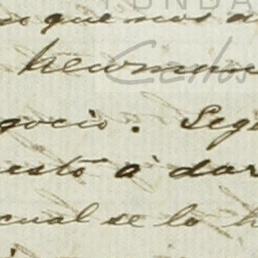 que nos a
hermano
gocio. Seg
esto à dar
cual se lo h